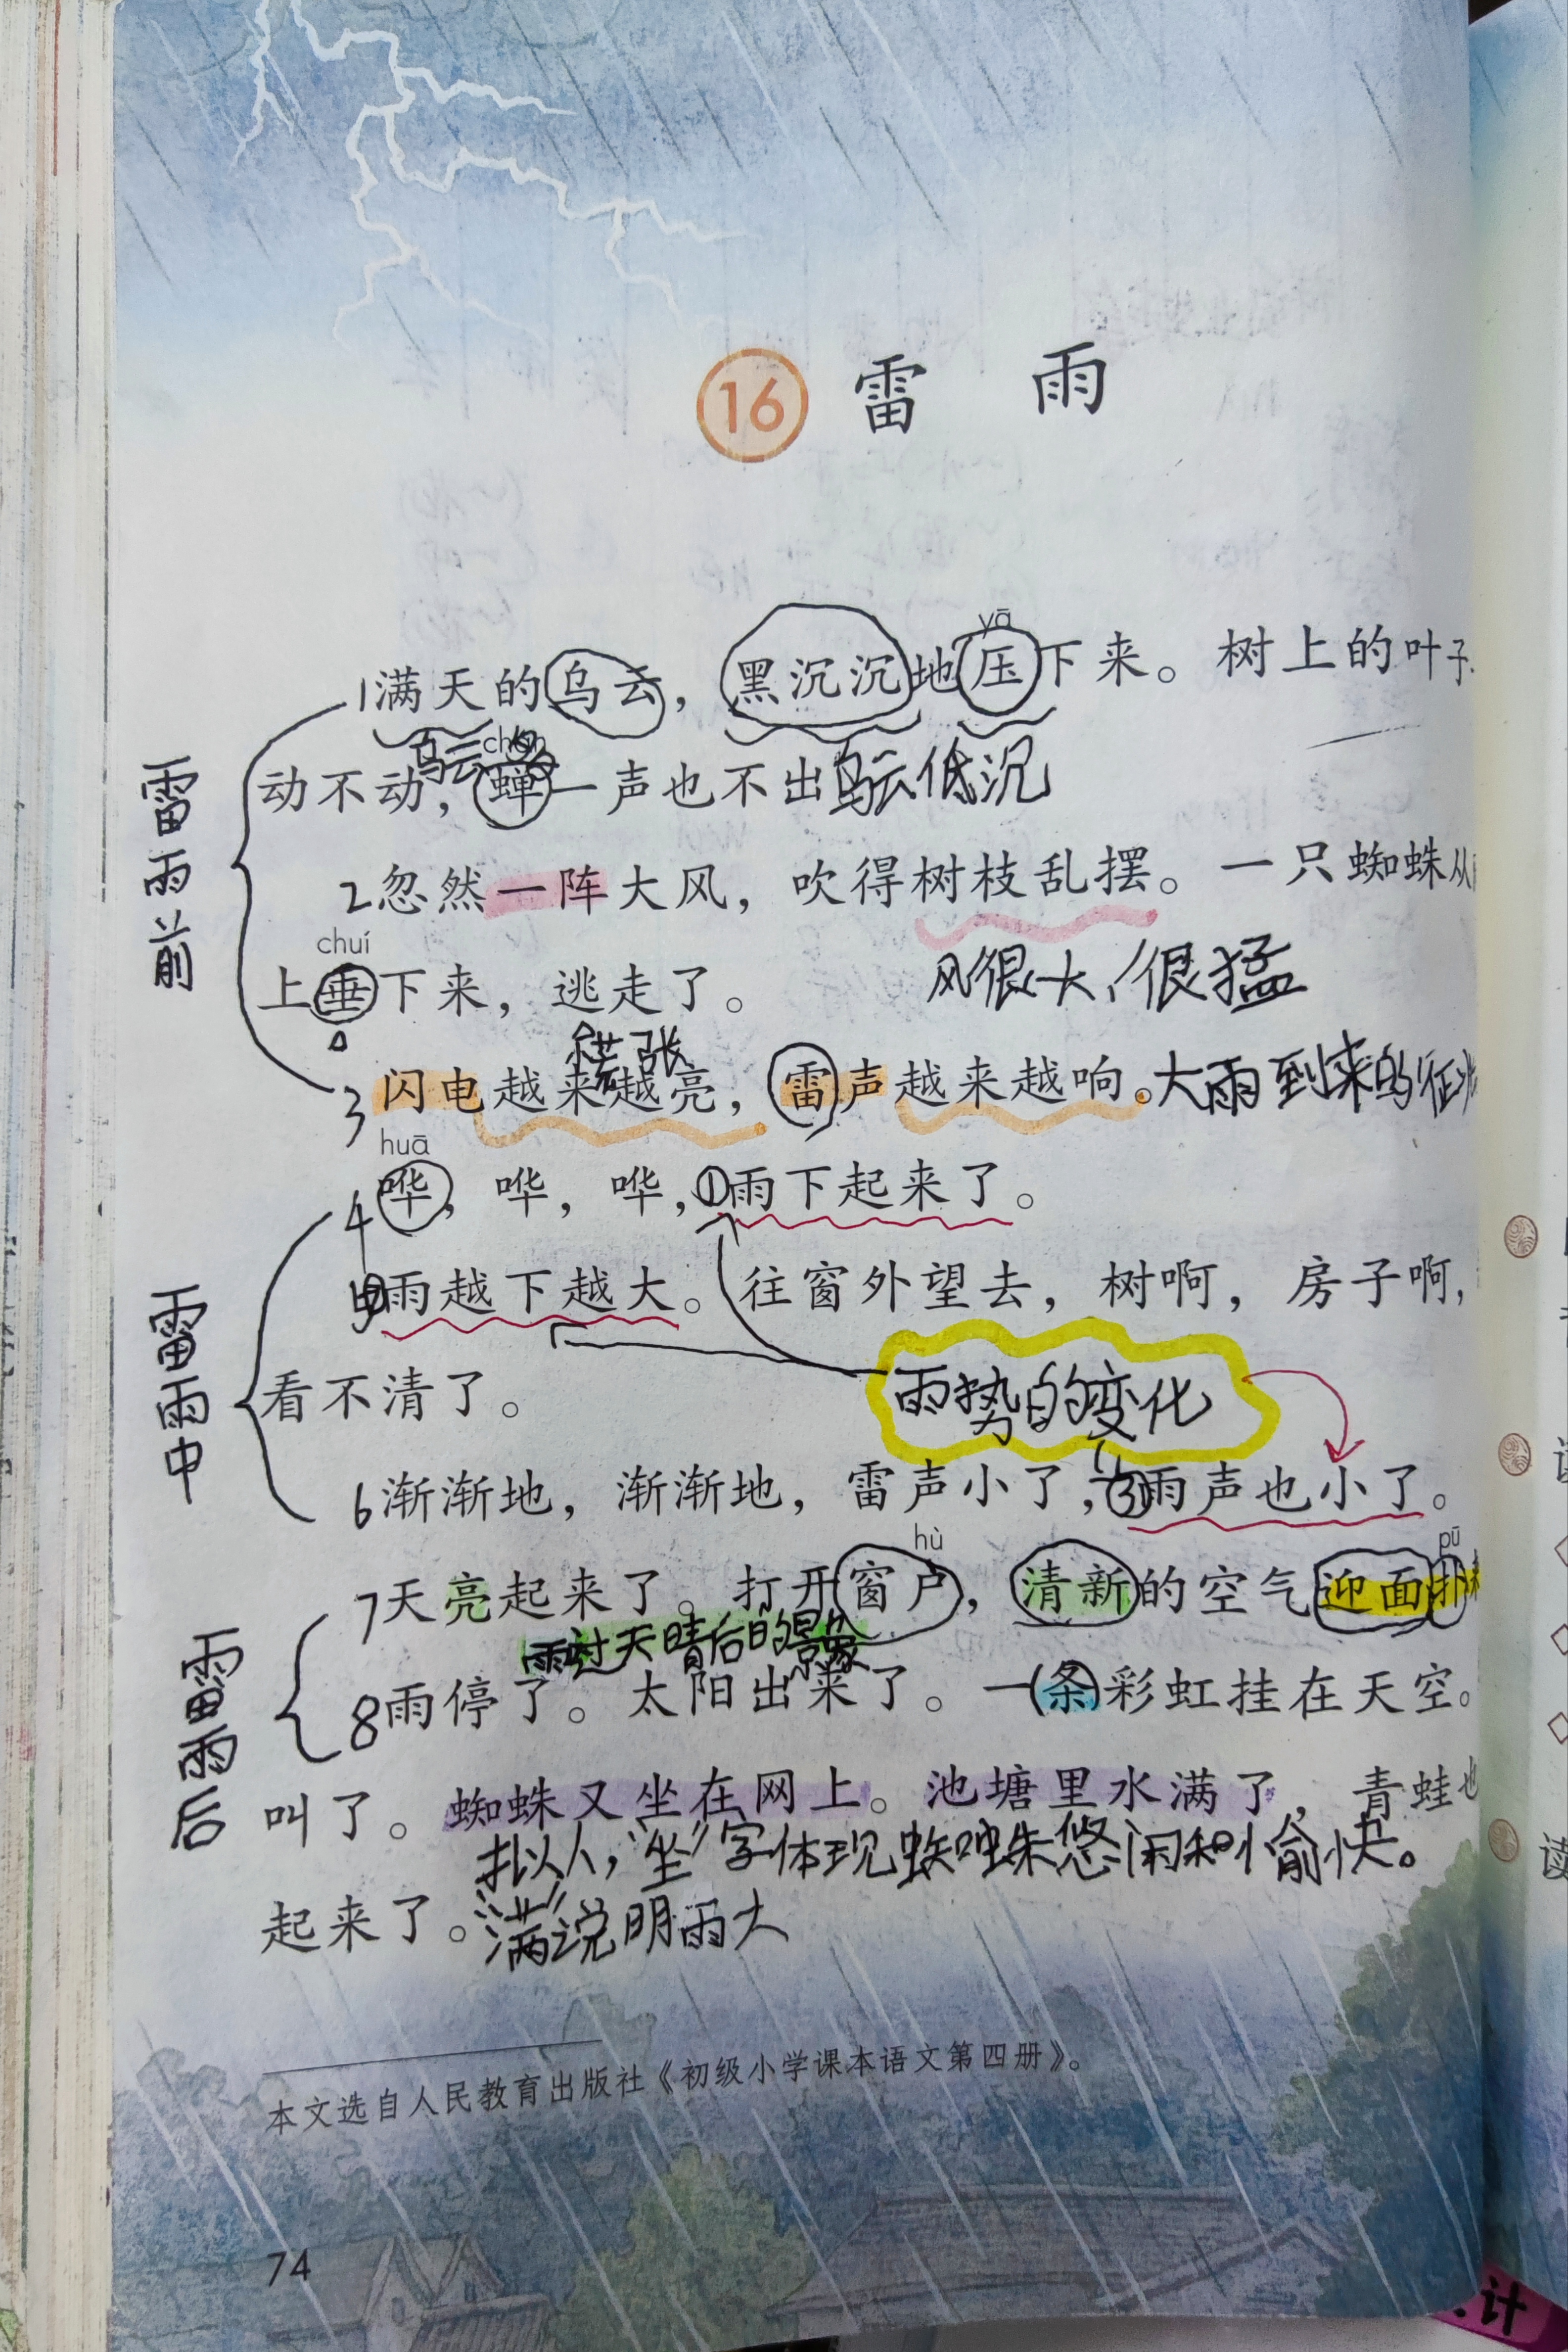 16 雷 雨
1满天的乌云，黑沉沉地压下来。树上的叶子
yā
乌云多
chán
动不动，蝉一声也不出 乌云低沉
2忽然一阵大风，吹得树枝乱摆。一只蜘蛛从
chuí
上垂下来，逃走了。
风很大，很猛
慌张
3闪电越来越亮，雷声越来越响。大雨到来的征
huā
4哗，哗，哗，①雨下起来了。
②雨越下越大。往窗外望去，树啊，房子啊，
看不清了。
雨势的变化
6渐渐地，渐渐地，雷声小了，③雨声也小了。
hù
pū
7天亮起来了。打开窗户，清新的空气迎面扑
雨过天晴后的景象
8雨停了。太阳出来了。一条彩虹挂在天空。
叫了。蜘蛛又坐在网上。池塘里水满了，青蛙也
拟人，“坐”字体现蜘蛛悠闲和愉快。
起来了。“满”说明雨大
雷雨前
雷雨中
雷雨后
本文选自人民教育出版社《初级小学课本语文第四册》。
74
读
计